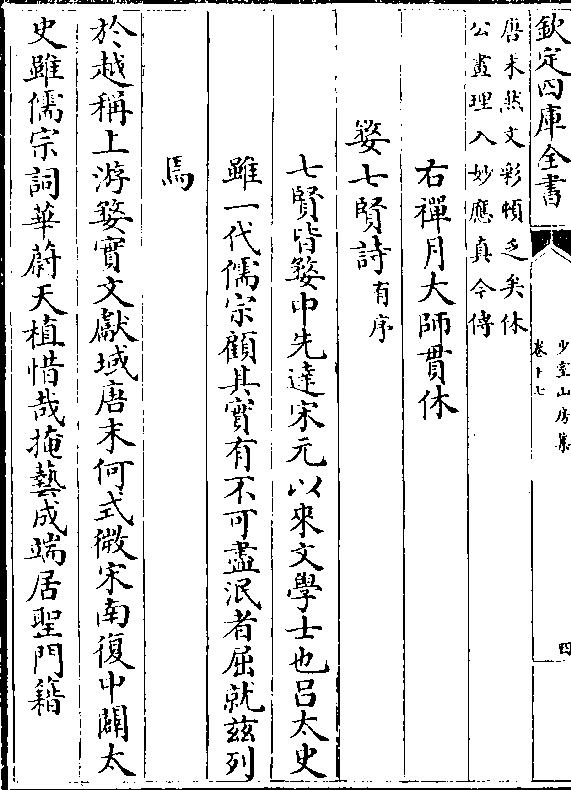 欽定四庫全書
少室山房集
卷十七
四
唐末然文彩頓乏矣休
公畫理入妙應真今傳
右禪月大師貫休
婺七賢詩有序
七賢皆婺中先達宋元以來文學士也呂太史
雖一代儒宗顧其實有不可盡泯者屈就茲列
焉
於越稱上游婺實文獻域唐末何式微宋南復中闢太
史雖儒宗詞華蔚天植惜哉掩藝成端居聖門籍